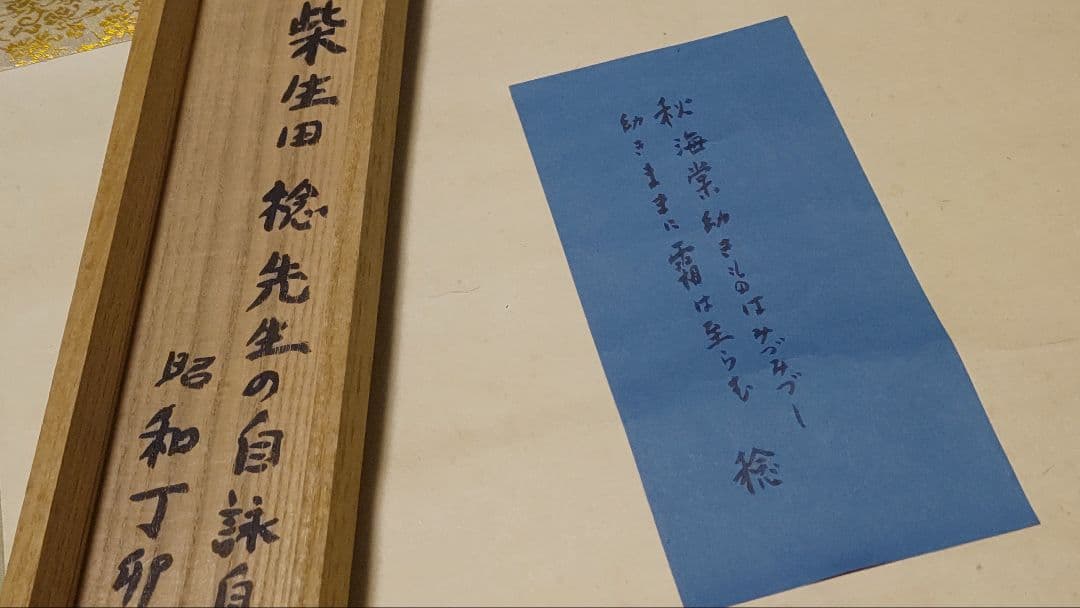 柴生田 稔先生の自詠自
昭和丁卯
秋海棠幼き苗はみづみづし
幼きままに霜は至らむ 稔